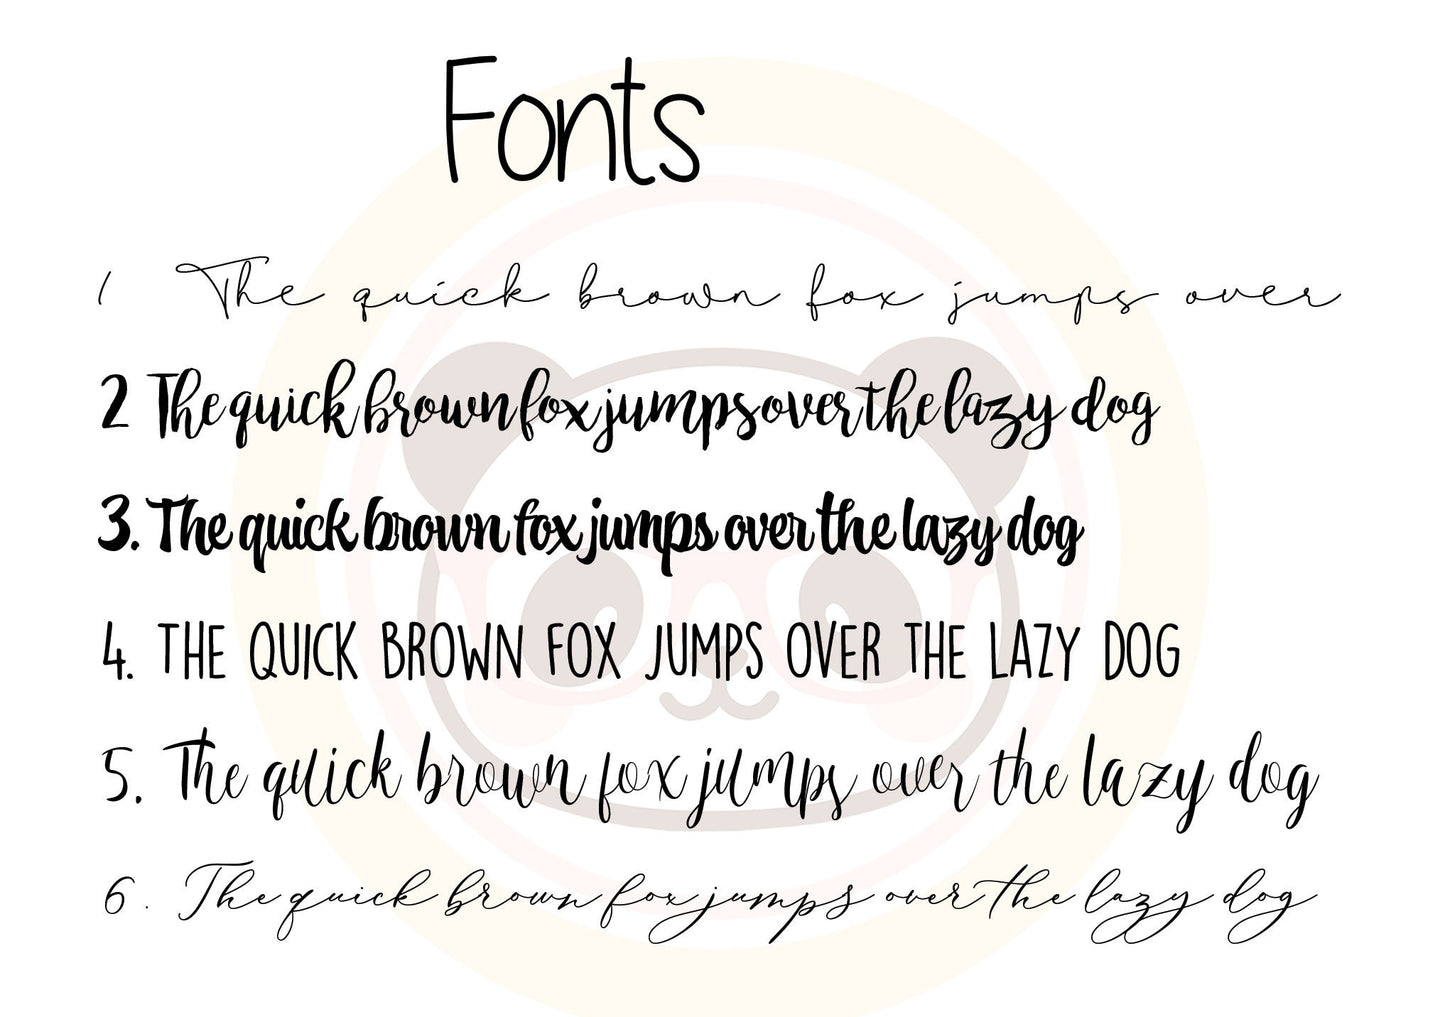 Fonts
1 The quick brown fox jumps over
2 The quick brown fox jumps over the lazy dog
3. The quick brown fox jumps over the lazy dog
4. THE QUICK BROWN FOX JUMPS OVER THE LAZY DOG
5. The quick brown fox jumps over the lazy dog
6. The quick brown fox jumps over the lazy dog